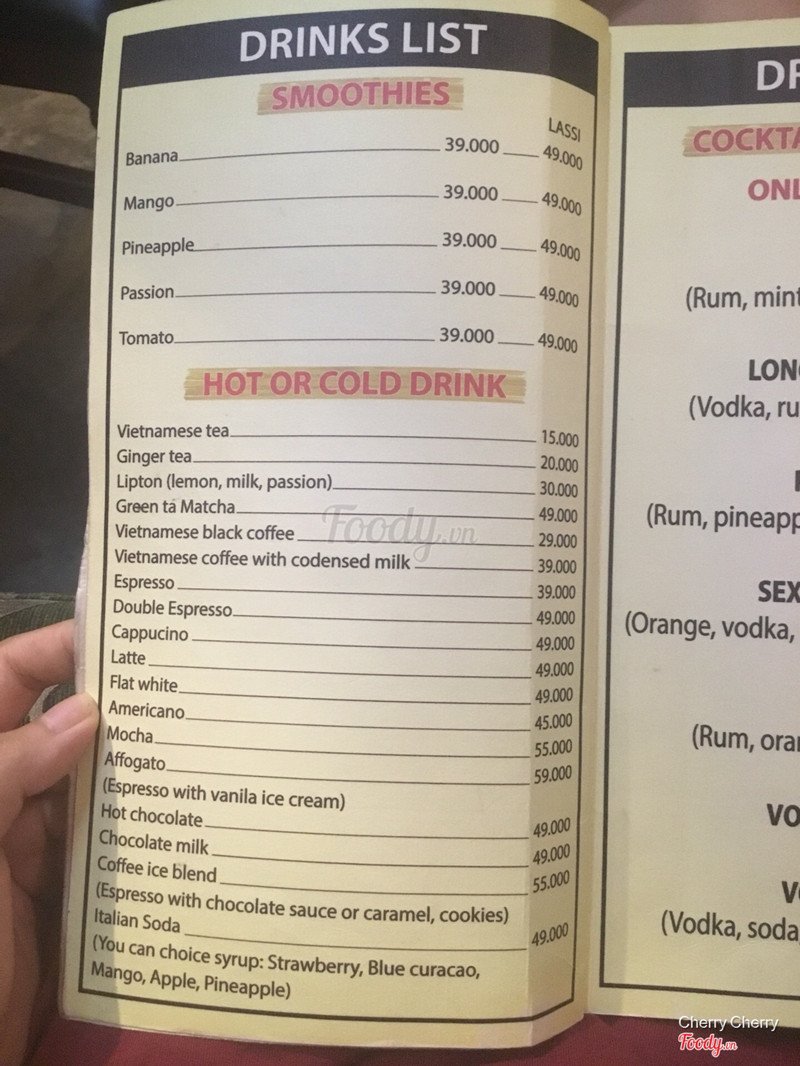 DRINKS LIST
SMOOTHIES
LASSI
Banana 39.000 49.000
Mango 39.000 49.000
Pineapple 39.000 49.000
Passion 39.000 49.000
Tomato 39.000 49.000
HOT OR COLD DRINK
Vietnamese tea 15.000
Ginger tea 20.000
Lipton (lemon, milk, passion) 30.000
Green tả Matcha 49.000
Vietnamese black coffee 29.000
Vietnamese coffee with codensed milk 39.000
Espresso 39.000
Double Espresso 49.000
Cappucino 49.000
Latte 49.000
Flat white 49.000
Americano 45.000
Mocha 55.000
Affogato 59.000
(Espresso with vanila ice cream)
Hot chocolate 49.000
Chocolate milk 49.000
Coffee ice blend 55.000
(Espresso with chocolate sauce or caramel, cookies)
Italian Soda 49.000
(You can choice syrup: Strawberry, Blue curacao,
Mango, Apple, Pineapple)
Foody.vn
COCKTA
ONL
(Rum, mint
LON
(Vodka, ru
(Rum, pineapp
SEX
(Orange, vodka,
(Rum, oran
VO
(Vodka, soda
Cherry Cherry
Foody.vn